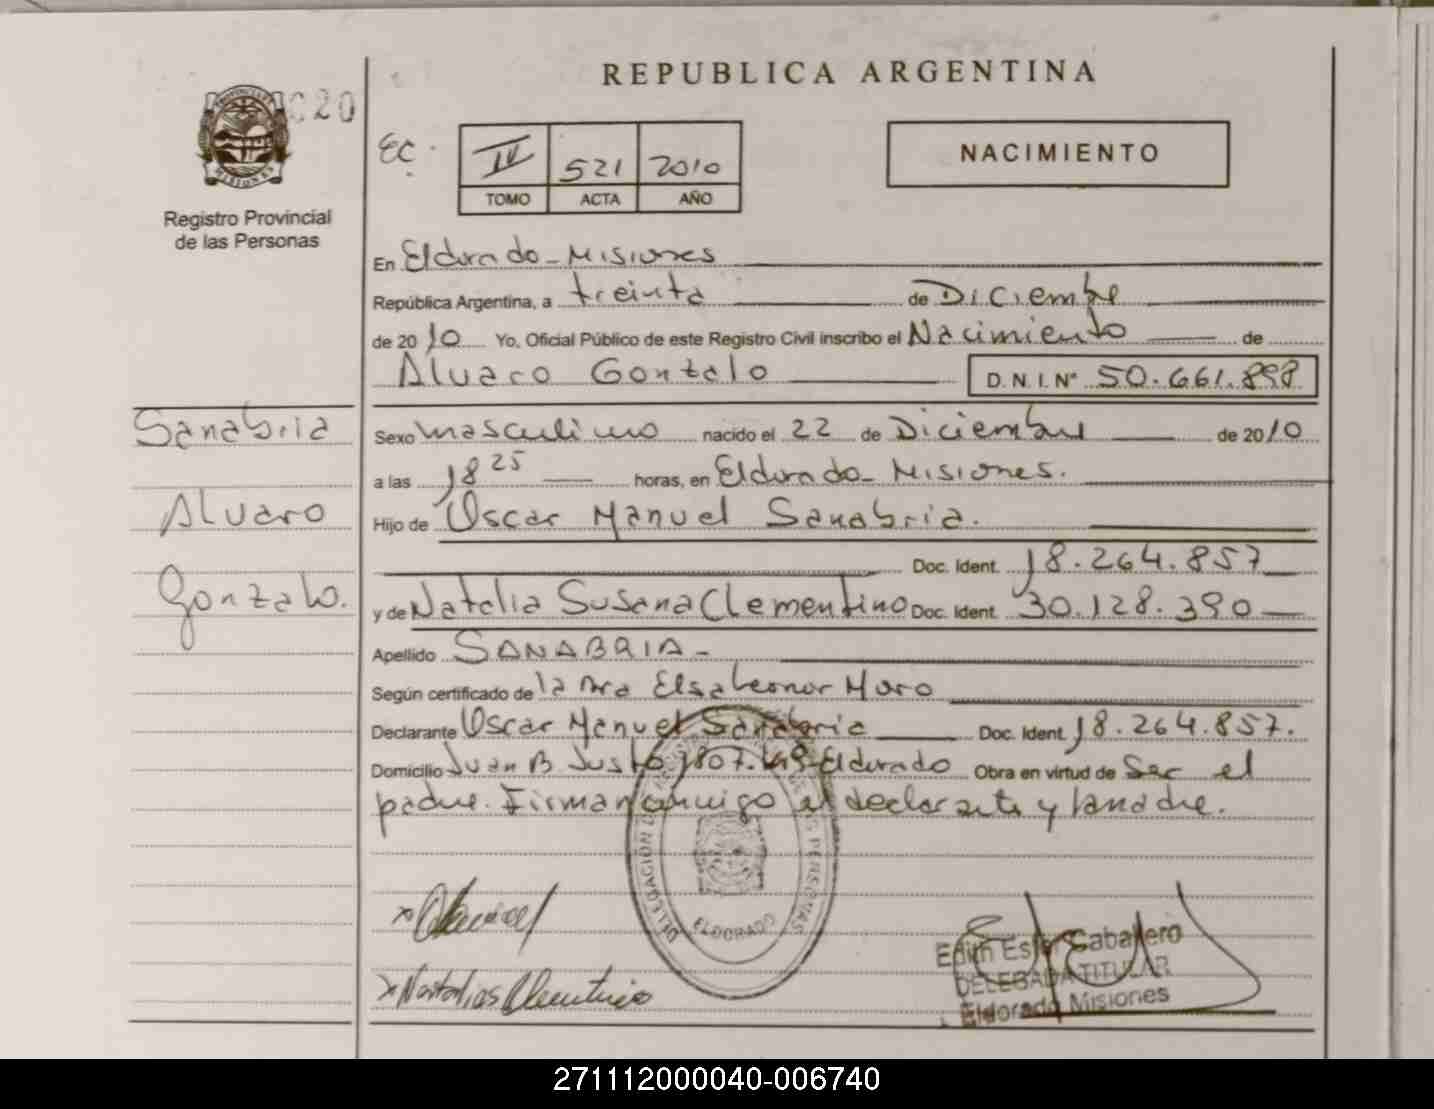 REPUBLICA ARGENTINA
PROVINCIA DE
MISIONES
020
Registro Provincial
de las Personas
EC.
IV 521 2010
TOMO ACTA AÑO
NACIMIENTO
En Eldorado - Misiones
República Argentina, a treinta de Diciembre
de 2010 Yo, Oficial Público de este Registro Civil inscribo el Nacimiento de
Alvaro Gonzalo D.N.I. Nº 50.661.898
Sanabria
Alvaro
Gonzalo.
Sexo masculino nacido el 22 de Diciembre de 2010
a las 18 25 horas, en Eldorado - Misiones.
Hijo de Oscar Manuel Sanabria.
Doc. Ident. 18.264.857
y de Natalia Susana Clementino Doc. Ident. 30.128.390
Apellido SANABRIA -
Según certificado de la Dra Elsa Leonor Muro
Declarante Oscar Manuel Sanabria Doc. Ident. 18.264.857.
Domicilio Juan B Justo 1807. Eldorado Obra en virtud de Ser el
padre. Firman conmigo el declarante y la madre.
DELEGACION DE REGISTRO DE LAS PERSONAS
ELDORADO
Edith Ester Caballero
DELEGADA TITULAR
Eldorado Misiones
271112000040-006740